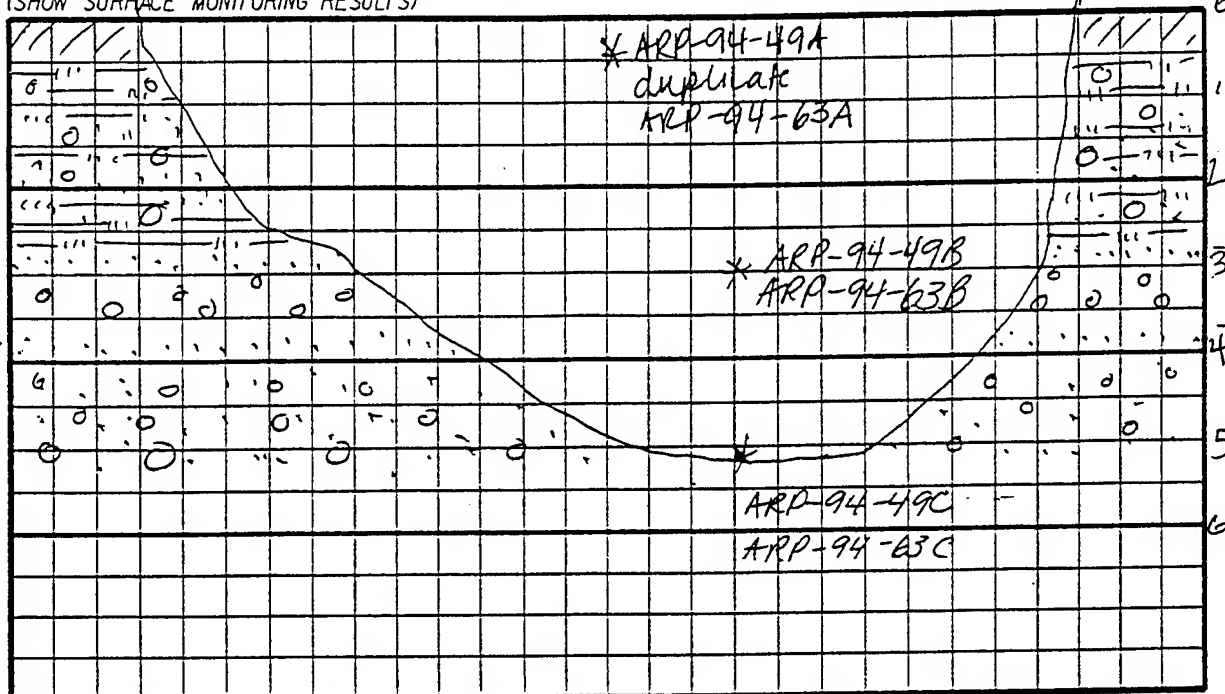 (SHOW SURFACE MONITORING RESULTS)
ARP-94-49A
duplicate
ARP-94-63A
1
2
ARP-94-49B
3
ARP-94-63B
4
5
ARP-94-49C
6
ARP-94-63C